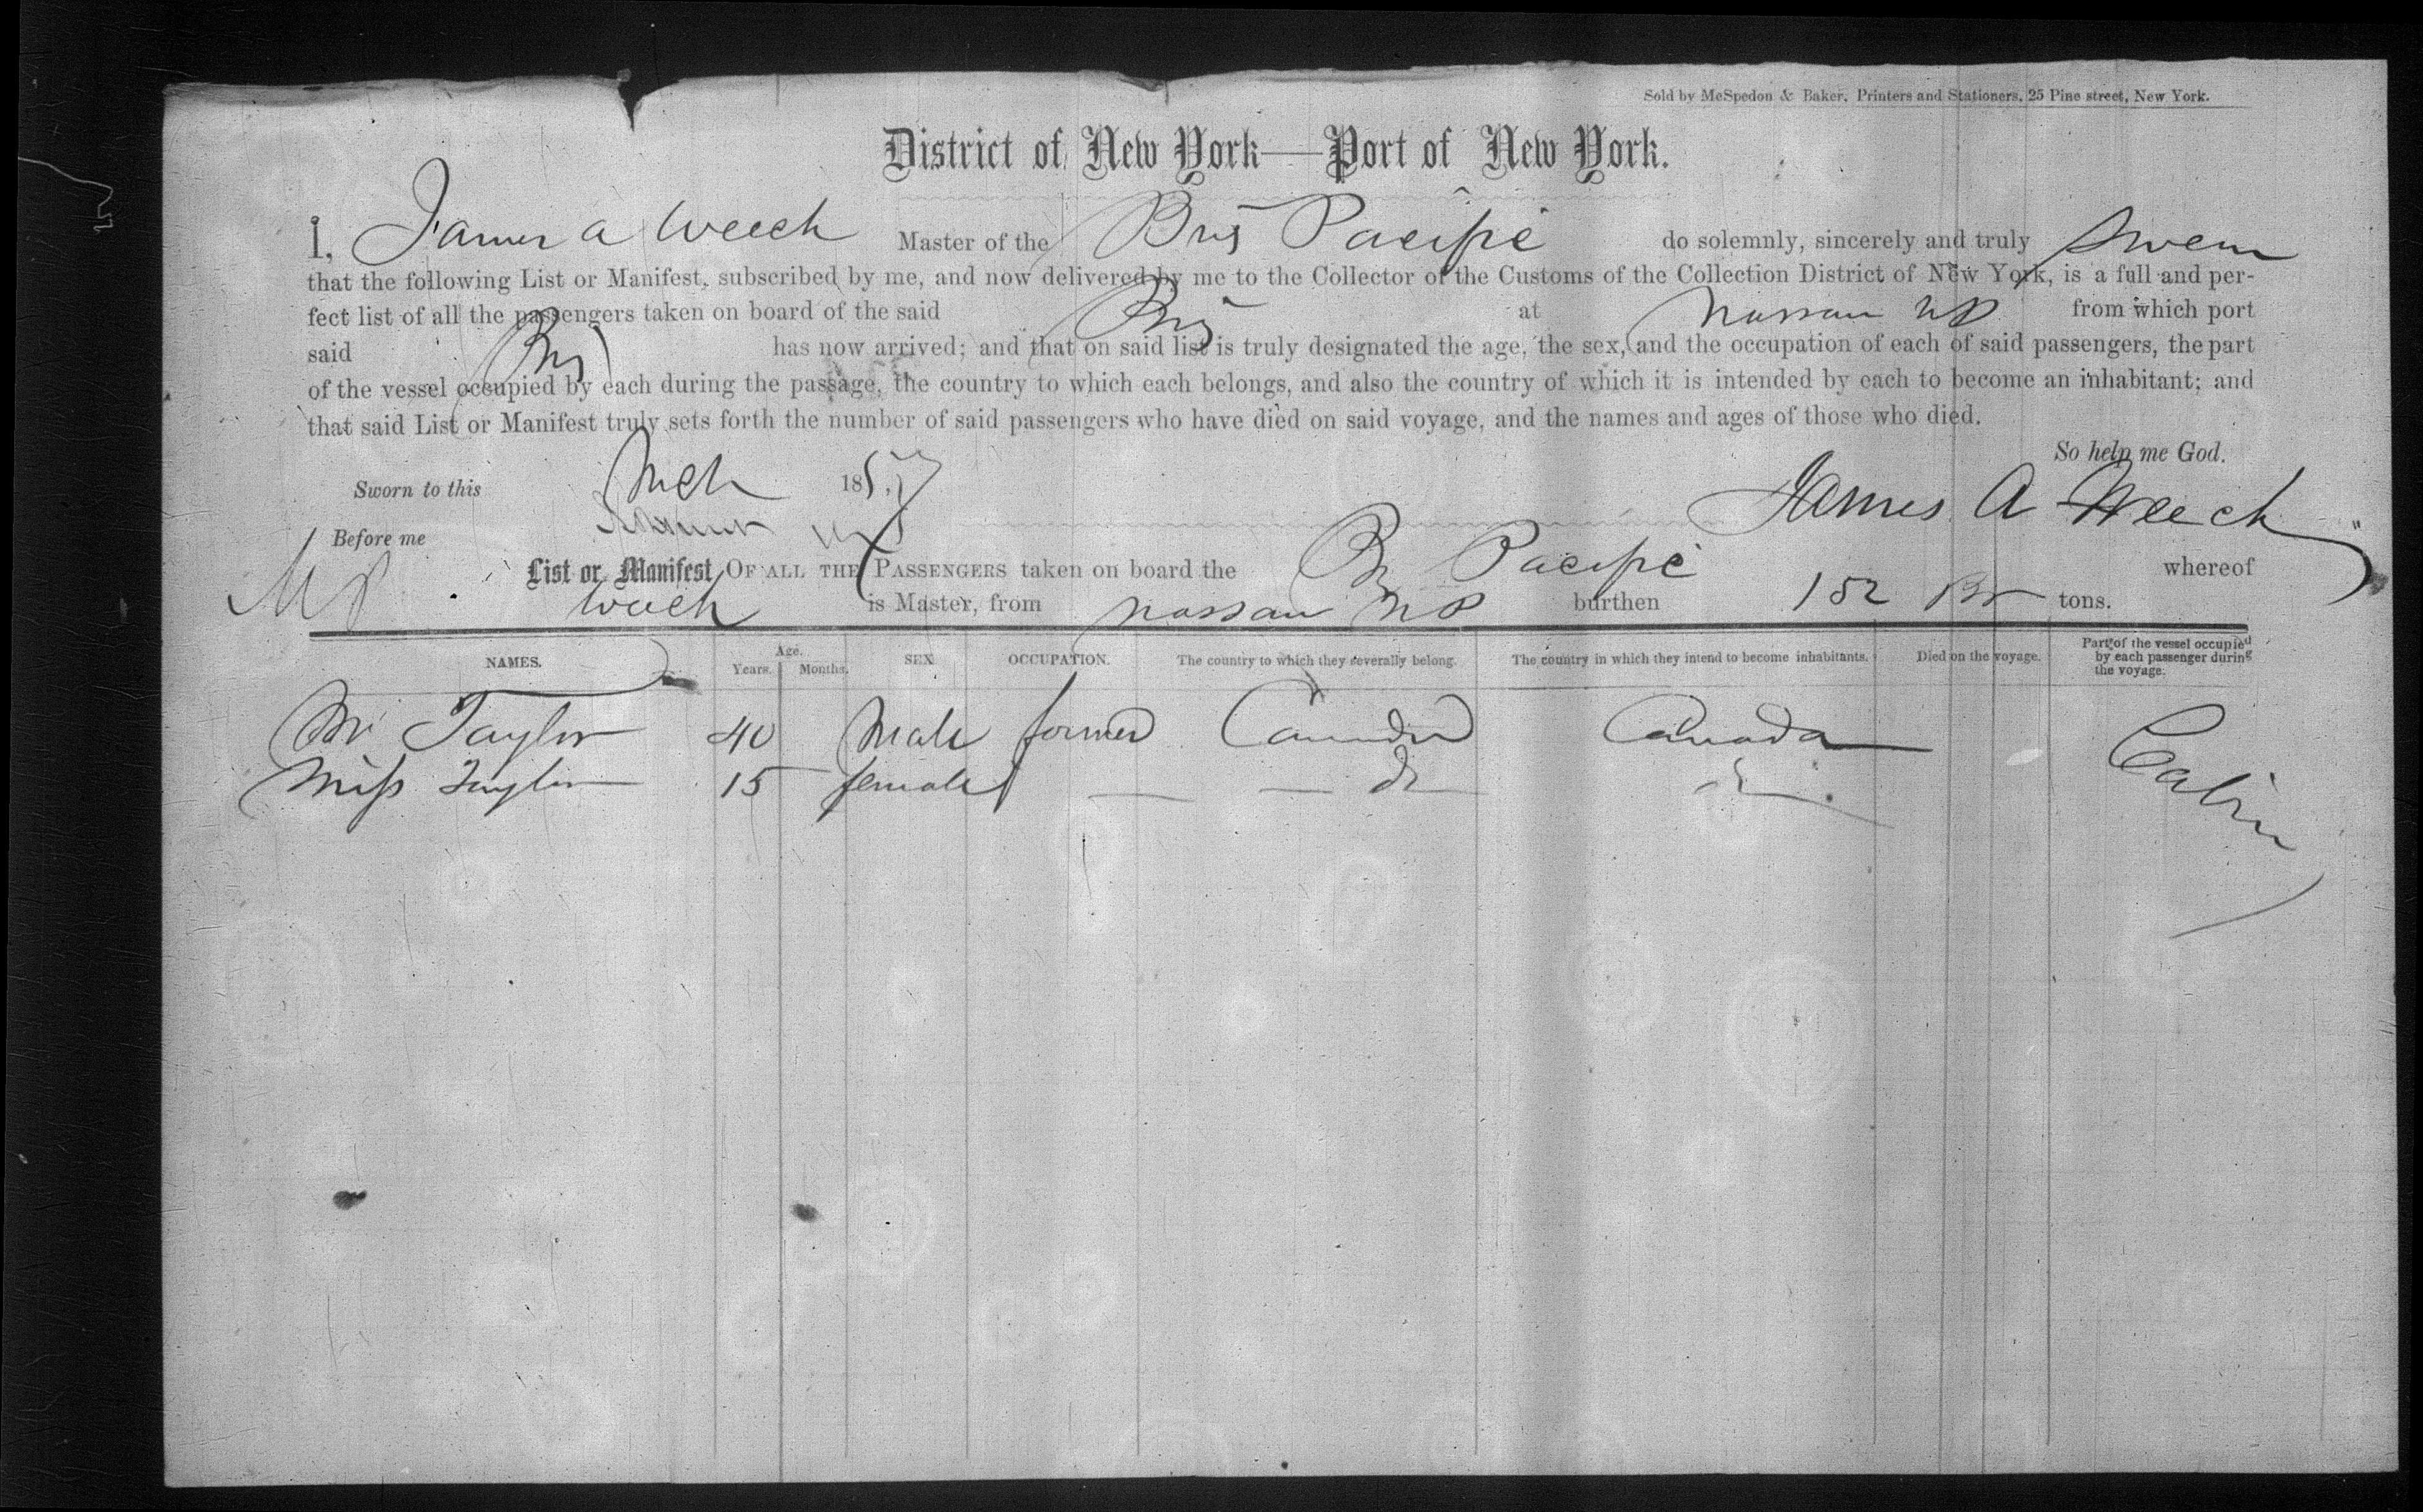 Sold by McSpedon & Baker, Printers and Stationers, 25 Pine street, New York.
District of New York—Port of New York.
I, James a Weech Master of the Brig Pacific do solemnly, sincerely and truly Swear
that the following List or Manifest, subscribed by me, and now delivered by me to the Collector of the Customs of the Collection District of New York, is a full and per-
fect list of all the passengers taken on board of the said Brig at Nassau NP from which port
said Brig has now arrived; and that on said list is truly designated the age, the sex, and the occupation of each of said passengers, the part
of the vessel occupied by each during the passage, the country to which each belongs, and also the country of which it is intended by each to become an inhabitant; and
that said List or Manifest truly sets forth the number of said passengers who have died on said voyage, and the names and ages of those who died.
So help me God.
Sworn to this Mch 1857
James A Weech
Before me
List or Manifest OF ALL THE PASSENGERS taken on board the Br Pacific whereof
Weech is Master, from Nassau NP burthen 152 tons.
NAMES. Age. Years. Months. SEX OCCUPATION. The country to which they severally belong. The country in which they intend to become inhabitants. Died on the voyage. Part of the vessel occupied by each passenger during the voyage.
Mr Taylor 40 Male farmer Canada Canada Cabin
Miss Taylor 15 female — — do — do —